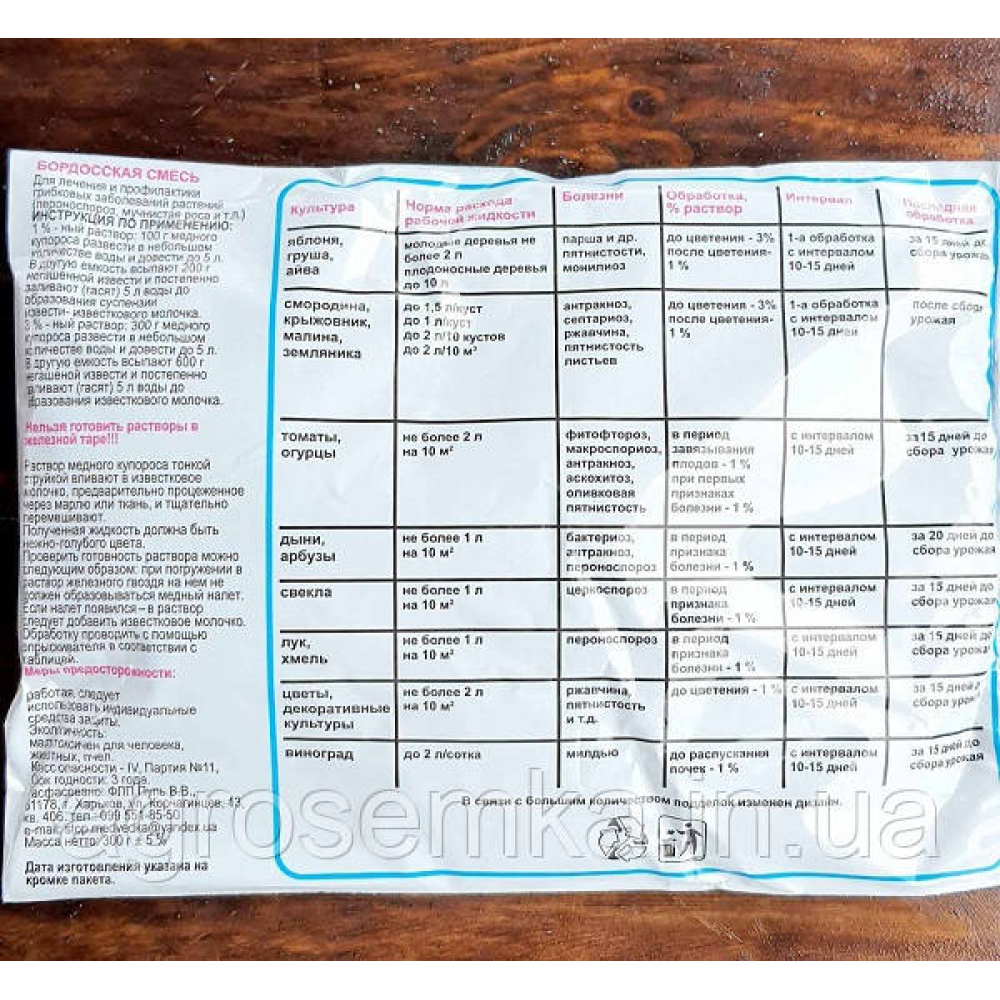 БОРДОССКАЯ СМЕСЬ
Для лечения и профилактики
грибковых заболеваний растений
(пероноспороз, мучнистая роса и т.п.)
ИНСТРУКЦИЯ ПО ПРИМЕНЕНИЮ:
1 % - ный раствор: 100 г медного
купороса развести в небольшом
количестве воды и довести до 5 л.
В другую емкость всыпают 200 г
негашенной извести и постепенно
заливают (гасят) 5 л воды до
образования суспензии
извести- известкового молочка.
3 % - ный раствор: 300 г медного
купороса развести в небольшом
количестве воды и довести до 5 л.
В другую емкость всыпают 600 г
негашеной извести и постепенно
заливают (гасят) 5 л воды до
образования известкового молочка.
Нельзя готовить растворы в
железной таре!!!
Раствор медного купороса тонкой
струйкой вливают в известковое
молочко, предварительно процеженное
через марлю или ткань, и тщательно
перемешивают.
Полученная жидкость должна быть
нежно-голубого цвета.
Проверить готовность раствора можно
следующим образом: при погружении в
раствор железного гвоздя на нем не
должен образовываться медный налет.
Если налет появился – в раствор
следует добавить известковое молочко.
Обработку проводить с помощью
опрыскивателя в соответствии с
таблицей.
Меры предосторожности:
работая, следует
использовать индивидуальные
средства защиты.
Экологичность:
малотоксичен для человека,
животных, пчел.
Класс опасности - IV, Партия №11,
Срок годности: 3 года.
Расфасревно: ФЛП Пупь В.В.,
61178, г. Харьков, ул. Корчагинцев, 43,
кв. 406. тел.: 099 551-85-50
e-mail: stop.medvedka@yandex.ua
Масса нетто: 300 г ± 5 %
Дата изготовления указана на
кромке пакета.
Культура Норма расхода рабочей жидкости Болезни Обработка, % раствор Интервал Последняя обработка
яблоня, молодые деревья не парша и др. до цветения - 3% 1-а обработка за 15 дней до
груша, более 2 л пятнистости, после цветения- с интервалом сбора урожая
айва плодоносные деревья монилиоз 1 % 10-15 дней
до 10 л
смородина, до 1,5 л/куст антракноз, до цветения - 3% 1-а обработка после сбора
крыжовник, до 1 л/куст септариоз, после цветения- с интервалом урожая
малина, до 2 л/10 кустов ржавчина, 1 % 10-15 дней
земляника до 2 л/10 м² пятнистость
листьев
томаты, не более 2 л фитофтороз, в период с интервалом за15 дней до
огурцы на 10 м² макроспориоз, завязывания 10-15 дней сбора урожая
антракноз, плодов - 1 %
аскохитоз, при первых
оливковая признаках
пятнистость болезни - 1 %
дыни, не более 1 л бактериоз, в период с интервалом за 20 дней до
арбузы на 10 м² антракноз, признака 10-15 дней сбора урожая
пероноспороз болезни - 1 %
свекла не более 1 л церкоспороз в период с интервалом за 15 дней до
на 10 м² признака 10-15 дней сбора урожая
болезни - 1 %
лук, не более 1 л пероноспороз в период с интервалом за 15 дней до
хмель на 10 м² признака 10-15 дней сбора урожая
болезни - 1 %
цветы, не более 2 л ржавчина, до цветения - 1 % с интервалом за 15 дней до
декоративные на 10 м² пятнистость 10-15 дней сбора урожая
культуры и т.д.
виноград до 2 л/сотка милдью до распускания с интервалом за 15 дней до
почек - 1 % 10-15 дней сбора урожая
В связи с большим количеством подделок изменен дизайн.
agrosemka.in.ua